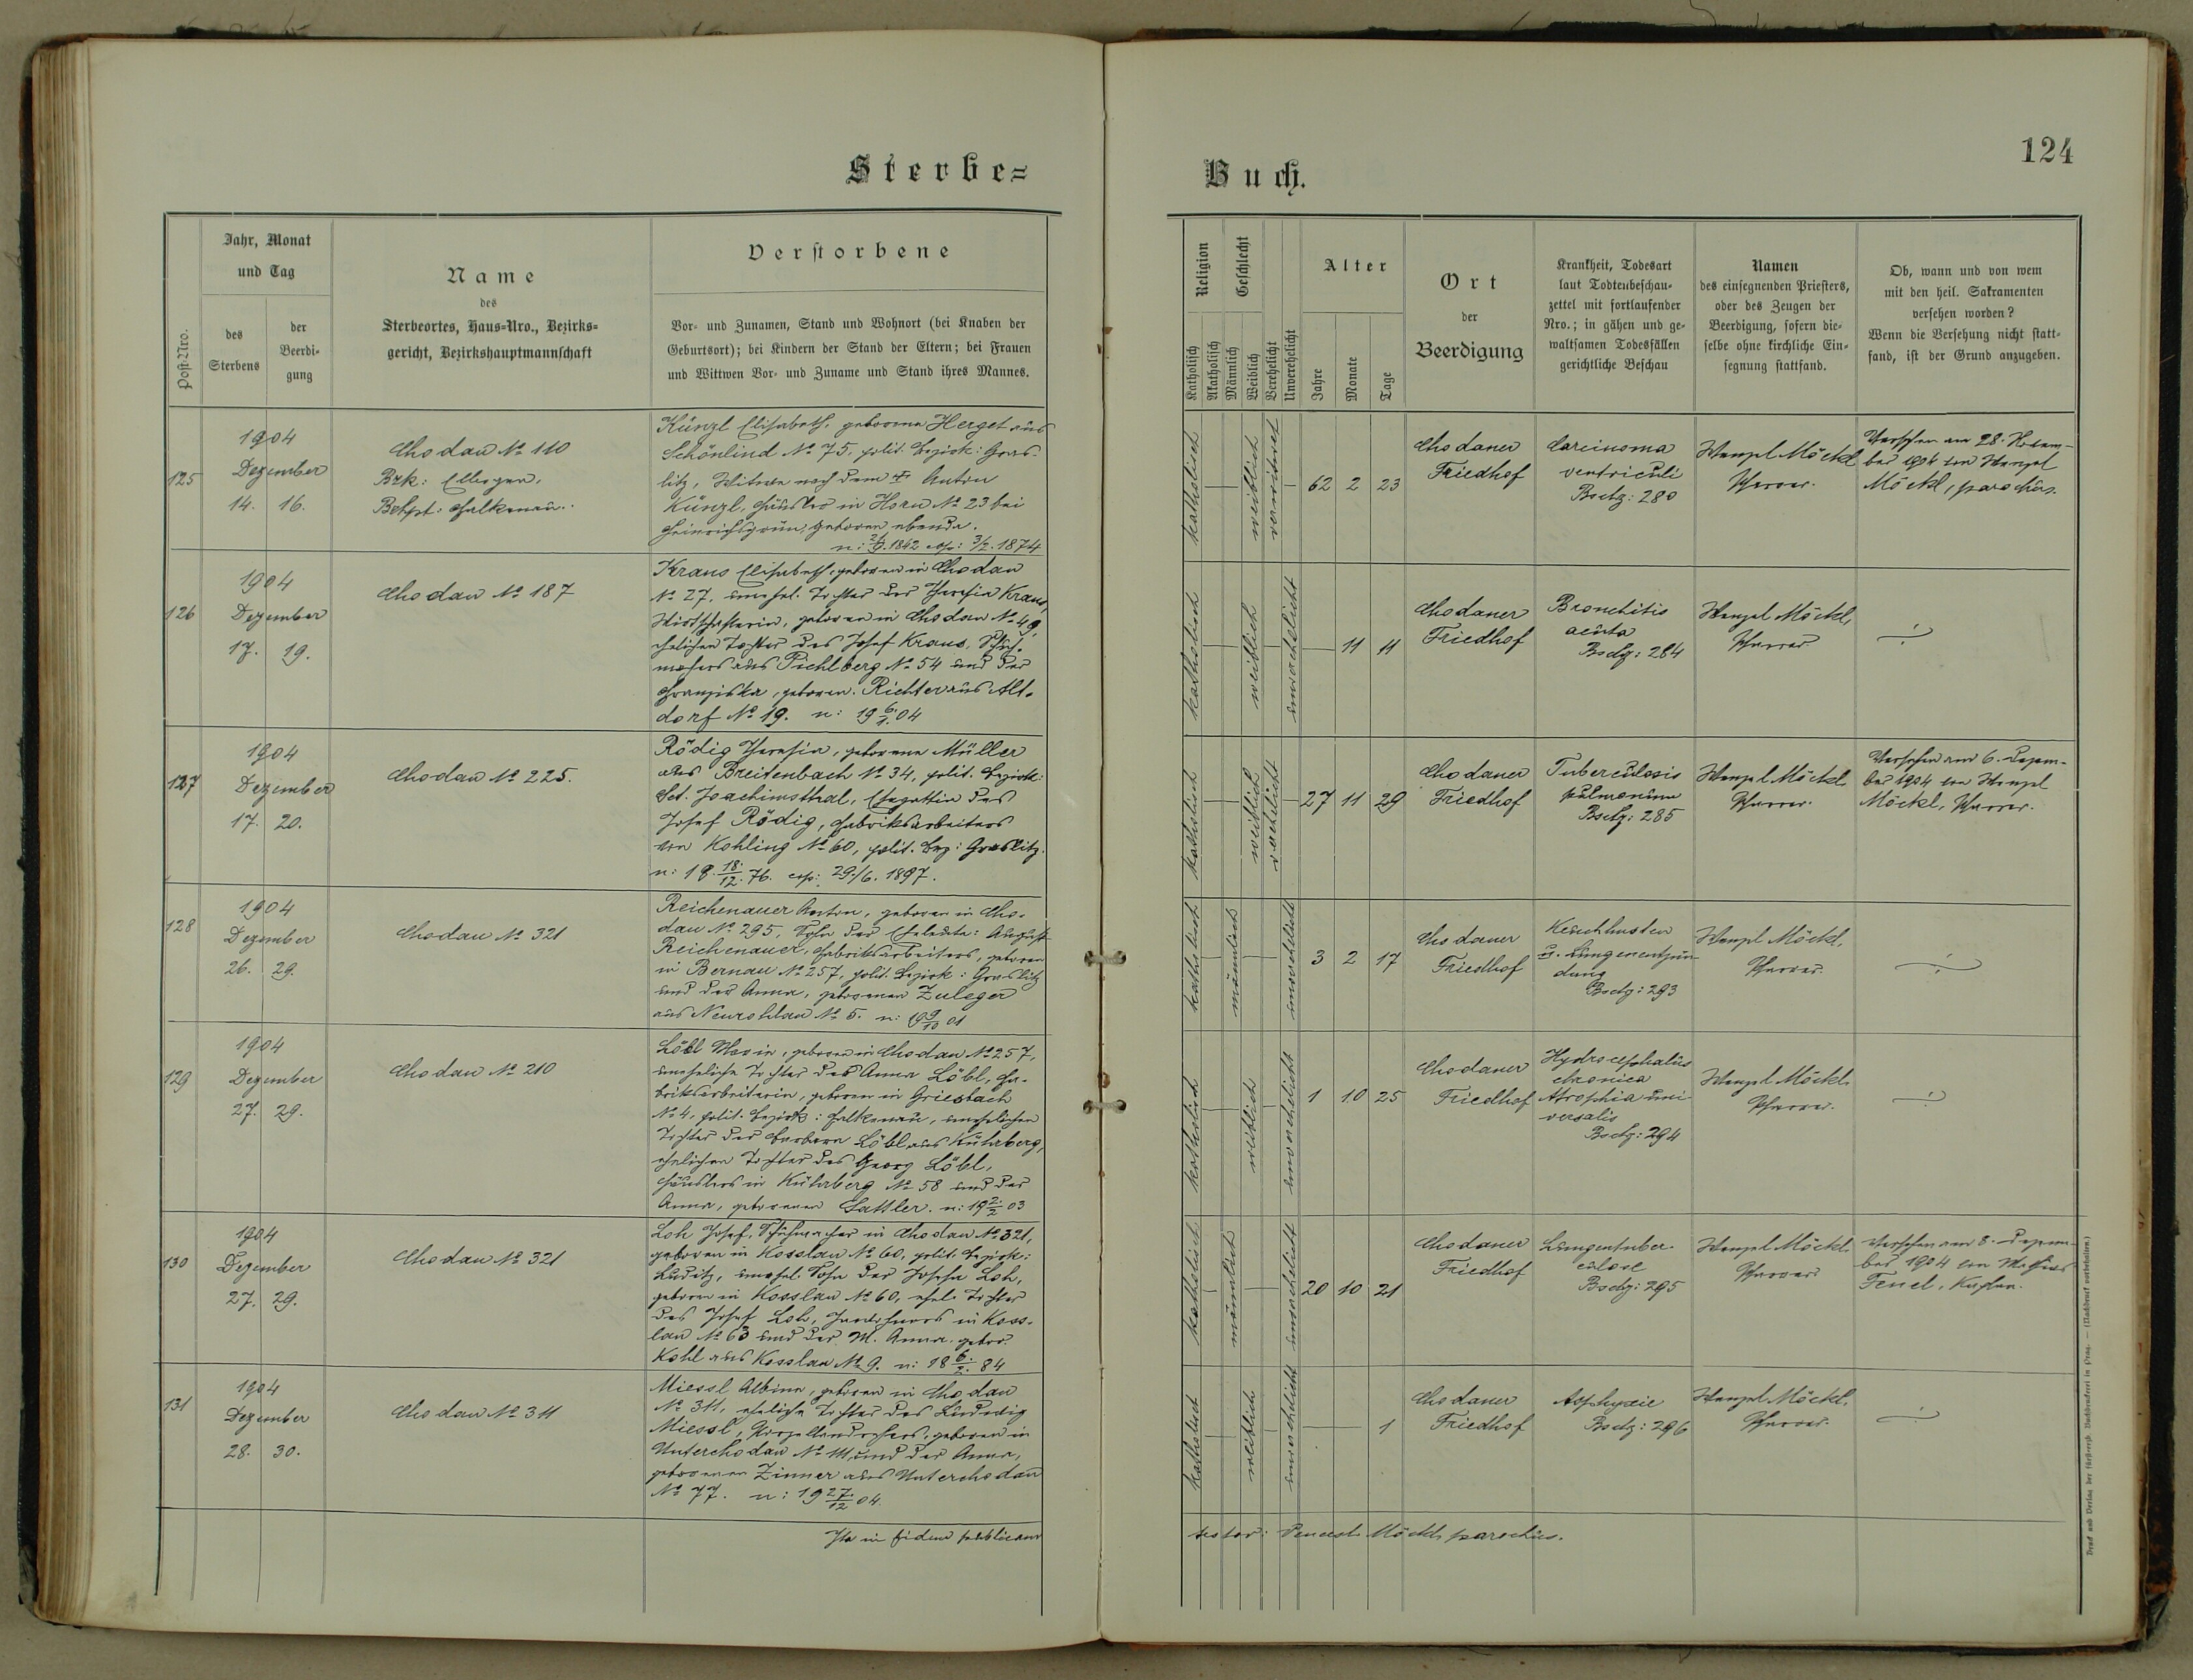 Sterbe=
Buch.
124
Post-Nro.
Jahr, Monat
und Tag
des
Sterbens
der
Beerdi-
gung
Name
des
Sterbeortes, Haus-Nro., Bezirks-
gericht, Bezirkshauptmannschaft
Verstorbene
Vor- und Zunamen, Stand und Wohnort (bei Knaben der
Geburtsort); bei Kindern der Stand der Eltern; bei Frauen
und Wittwen Vor- und Zuname und Stand ihres Mannes.
Religion
Katholisch
Akatholisch
Geschlecht
Männlich
Weiblich
Verehelicht
Unverehelicht
Alter
Jahre
Monate
Tage
Ort
der
Beerdigung
Krankheit, Todesart
laut Todtenbeschau-
zettel mit fortlaufender
Nro.; in gähen und ge-
waltsamen Todesfällen
gerichtliche Beschau
Namen
des einsegnenden Priesters,
oder des Zeugen der
Beerdigung, sofern die-
selbe ohne kirchliche Ein-
segnung stattfand.
Ob, wann und von wem
mit den heil. Sakramenten
versehen worden?
Wenn die Versehung nicht statt-
fand, ist der Grund anzugeben.
125
1904
Dezember
14. 16.
Chodau No 110
Bzk: Ellbogen,
Bzhpt: Falkenau.
Künzl Elisabeth, geborene Herget aus
Schönlind No 75, polit. Bezirk: Gras-
litz, Witwe nach dem † Anton
Künzl, Häusler in Horn No 23 bei
Heinrichsgrün, geboren ebenda.
1842 cop: 3/2. 1874
katholisch
weiblich
verwitwet
62 2 23
Chodauer
Friedhof
Carcinoma
ventriculi
Bschz: 280
Wenzel Möckl
Pfarrer.
Versehen am 28. Novem-
ber 1904 von Wenzel
Möckl, parochus.
126
1904
Dezember
17. 19.
Chodau No 187
Kraus Elisabeth, geboren in Chodau
No 27, unehel. Tochter der Theresia Kraus,
Wirtschafterin, geboren in Chodau No 49,
ehelichen Tochter des Josef Kraus, Schuh-
machers aus Pichlberg No 54 und der
Franziska, geboren. Richter aus Alt-
dorf No 19. n: 19 6/1. 04
katholisch
weiblich
unverehelicht
11 11
Chodauer
Friedhof
Bronchitis
acuta
Bschz: 284
Wenzel Möckl,
Pfarrer.
127
1904
Dezember
17. 20.
Chodau No 225.
Rödig Theresia, geborene Müller
aus Breitenbach No 34, polit. Bezirk:
Sct. Joachimsthal, Ehegattin des
Josef Rödig, Fabriksarbeiters
von Kohling No 60, polit. Bez: Graslitz.
n: 18 18./12. 76. cop: 29./6. 1897.
katholisch
weiblich
verehelicht
27 11 29
Chodauer
Friedhof
Tuberculosis
pulmonum
Bschz: 285
Wenzel Möckl
Pfarrer.
Versehen am 6. Dezem-
ber 1904 von Wenzel
Möckl, Pfarrer.
128
1904
Dezember
26. 29.
Chodau No 321
Reichenauer Anton, geboren in Cho-
dau No 295, Sohn der Eheleute: August
Reichenauer, Fabriksarbeiters, geboren
in Bernau No 257, polit. Bezirk: Graslitz
und der Anna, geborenen Zuleger
aus Neurohlau No 5. n: 19 9/10 01
katholisch
männlich
unverehelicht
3 2 17
Chodauer
Friedhof
Keuchhusten
u. Lungenentzün-
dung
Bschz: 293
Wenzel Möckl,
Pfarrer.
129
1904
Dezember
27. 29.
Chodau No 210
Löbl Maria, geboren in Chodau No 257,
uneheliche Tochter der Anna Löbl, Fa-
briksarbeiterin, geboren in Griesbach
No 4, polit. Bezirk: Falkenau, unehelichen
Tochter der Barbara Löbl aus Kührberg,
ehelichen Tochter des Georg Löbl,
Häuslers in Kührberg No 58 und der
Anna, geborenen Sattler. n: 19 2/2 03
katholisch
weiblich
unverehelicht
1 10 25
Chodauer
Friedhof
Hydrocephalus
chronica
Atrophia uni-
versalis
Bschz: 294
Wenzel Möckl
Pfarrer.
130
1904
Dezember
27. 29.
Chodau No 321
Loh Josef, Schuhmacher in Chodau No 321,
geboren in Kosslau No 60, polit. Bezirk:
Luditz, unehel. Sohn der Josefa Loh,
geboren in Kosslau No 60, ehel. Tochter
des Josef Loh, in Koss-
lau No 63 und der M. Anna gebor.
Kohl aus Kosslau No 9. n: 18 6./2. 84
katholisch
männlich
unverehelicht
20 10 21
Chodauer
Friedhof
Lungentuber-
culose
Bschz: 295
Wenzel Möckl
Pfarrer
Versehen am 8. Dezem-
ber 1904 von
Kaplan.
131
1904
Dezember
28. 30.
Chodau No 311
Miessl Albina, geboren in Chodau
No 311, eheliche Tochter des Ludwig
Miessl, Porzellandrehers, geboren in
Unterchodau No 111, und der Anna,
geborenen Zinner aus Unterchodau
No 77. n: 19 27./12 04.
katholisch
weiblich
unverehelicht
1
Chodauer
Friedhof
Asphyxie
Bschz: 296
Wenzel Möckl,
Pfarrer.
Ita in fidem publicam
testor: Wencesl. Möckl, parochus.
Druck und Verlag der fürsterzb. Buchdruckerei in Prag. — (Nachdruck vorbehalten.)